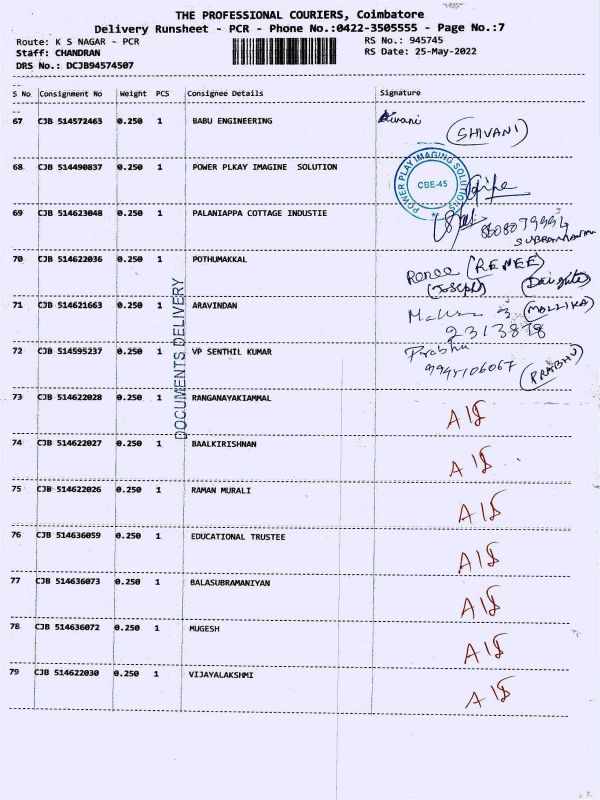 THE PROFESSIONAL COURIERS, Coimbatore
Delivery Runsheet - PCR - Phone No.:0422-3505555 - Page No.:7
Route: K S NAGAR - PCR RS No.: 945745
Staff: CHANDRAN RS Date: 25-May-2022
DRS No.: DCJB94574507
S No Consignment No Weight PCS Consignee Details Signature
67 CJB 514572463 0.250 1 BABU ENGINEERING
(SHIVANI)
68 CJB 514490837 0.250 1 POWER PLKAY IMAGINE SOLUTION
POWER PLAY IMAGING SOLUTIONS
CBE-45
69 CJB 514623048 0.250 1 PALANIAPPA COTTAGE INDUSTIE
70 CJB 514622036 0.250 1 POTHUMAKKAL
Renee (RENEE)
(Joseph)
71 CJB 514621663 0.250 1 ARAVINDAN
(MALLIKA)
72 CJB 514595237 0.250 1 VP SENTHIL KUMAR
Prabhu
(PRABHU)
DOCUMENTS DELIVERY
73 CJB 514622028 0.250 1 RANGANAYAKIAMMAL
74 CJB 514622027 0.250 1 BAALKIRISHNAN
75 CJB 514622026 0.250 1 RAMAN MURALI
76 CJB 514636059 0.250 1 EDUCATIONAL TRUSTEE
77 CJB 514636073 0.250 1 BALASUBRAMANIYAN
78 CJB 514636072 0.250 1 MUGESH
79 CJB 514622030 0.250 1 VIJAYALAKSHMI